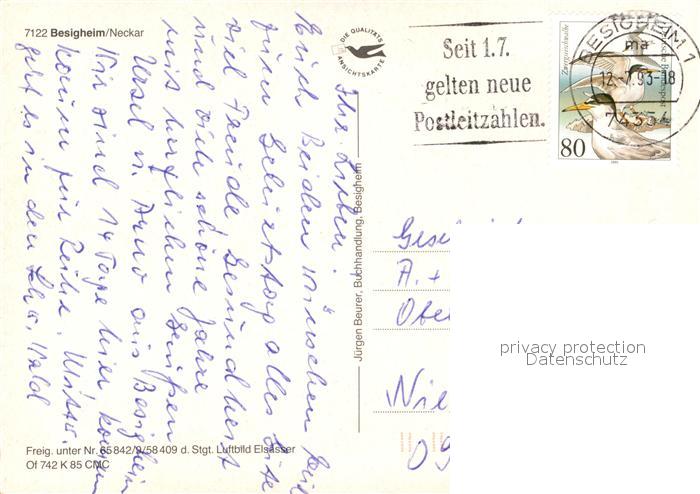 7122 Besigheim/Neckar
DIE QUALITÄTS
ANSICHTSKARTE
Seit 1.7.
gelten neue
Postleitzahlen.
BESIGHEIM 1
ma
12.-7.93-18
7433
Zwergseeschwalbe
Deutsche Bundespost
80
Ihr Lieben!
Euch Beiden wünschen wir
zum Geburtstag alles Gute
viel Freude, Gesundheit
und viele schöne Jahre
mit herzlichen Grüßen
Ursel u. Arno aus Besigheim
Wir sind 14 Tage hier
kaum für Reihe.
geht es in den Wald
Jürgen Beurer, Buchhandlung, Besigheim
A. +
Nie
09
privacy protection
Datenschutz
Freig. unter Nr. 65842/9/58409 d. Stgt. Luftbild Elsässer
Of 742 K 85 CMC